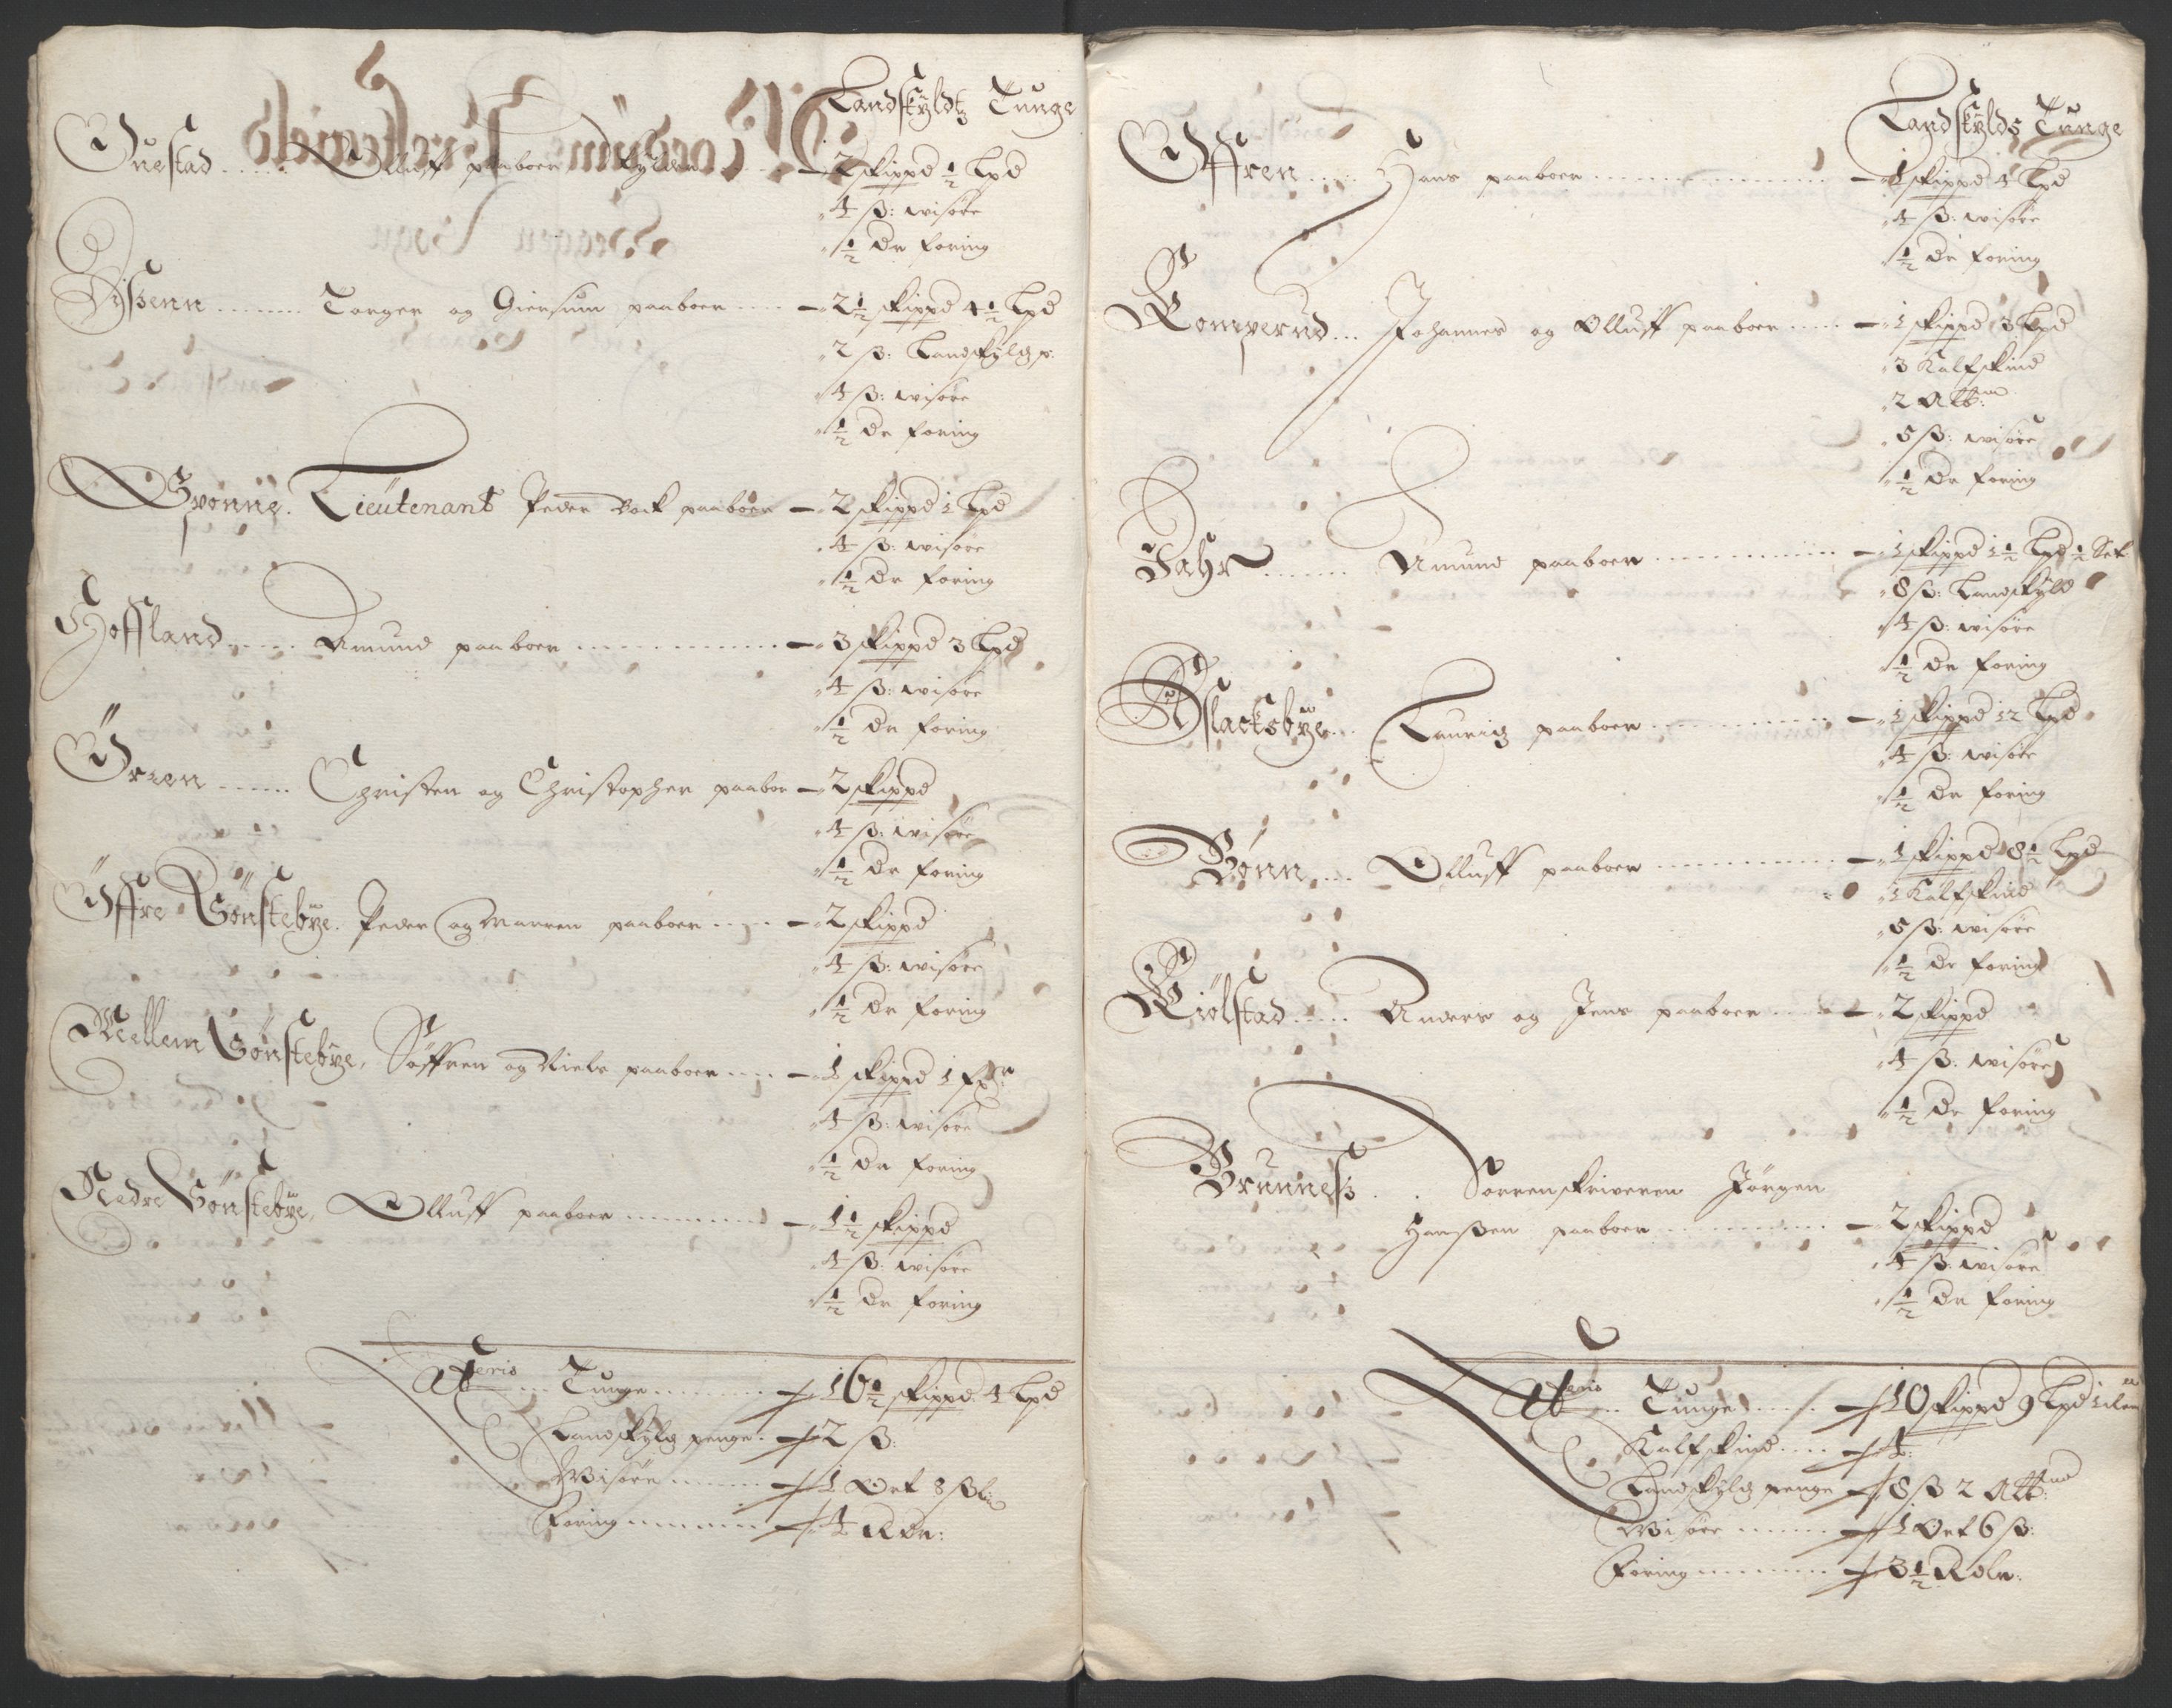 Landskyldtz Tunge
Guestad ...... Olluff paaboer — 2 skippd ½ Lpd
4 ß: wisøre
½ dr foring
Dißenn ....... Torger og Giersum paaboer .... — 2½ skippd 4½ Lpd
2 ß: Landskyldz p:
4 ß: wisøre
½ dr foring
Grønne. Lieutenant Peder Bock paaboer — 2 skippd 1 Lpd
4 ß: wisøre
½ dr foring
Hoffland ...... Amund paaboer .............. — 3 skippd 3 Lpd
4 ß: wisøre
½ dr foring
Øreen ...... Christen og Christopher paaboe — 2 skippd
4 ß: wisøre
½ dr foring
Øffre Bønstebye. Peder og Maren paaboer ..... — 2 skippd
4 ß: wisøre
½ dr foring
Mellem Bønstebye, Søffren og Niels paaboer .... — 1 skippd 1 fxr
4 ß: wisøre
½ dr foring
Nedre Bønstebye, Olluff paaboer ......... — 1½ skippd
4 ß: wisøre
½ dr foring
Lateris ... Tunge ....... 16½ skippd 4 Lpd
Landskyldz penge. 2 ß:
Wisøre ....... 1 Ort 8 ß
Foring ....... 4 Rdr:
Landskylds Tunge
Øffren .... Hans paaboer ................ — 1 skippd 4 Lpd
4 ß: wisøre
½ dr foring
Komperud ... Johannes og Olluff paaboer ..... — 1 skippd 3 Lpd
3 Kalfskind
2 Alb:
5 ß: wisøre
½ dr foring
Jahr ....... Amund paaboer .............. — 1 skippd 1½ Lpd ½ Set
8 ß: Landskyld
4 ß: wisøre
½ dr foring
Aslacksbye ... Lauritz paaboer .............. — 1 skippd 12 Lpd
4 ß: wisøre
½ dr foring
Bønn .... Olluff paaboer ............. — 1 skippd 8½ Lpd
1 Kalfskind
5 ß: wisøre
½ dr foring
Kiølstad ..... Anders og Jens paaboer ..... — 2 skippd
4 ß: wisøre
½ dr foring
Brunneß . . Sorrenskriveren Jørgen
Hanßen paaboer .............. — 2 skippd
4 ß: wisøre
½ dr foring
Lateris .. Tunge ..... 10 skippd 9 Lpd
Kalfskind .... 4:
Landskyldz penge 8 ß 2 Alb:
Wisøre ...... 1 Ort 6 ß:
Foring ......... 3½ Rdlr: